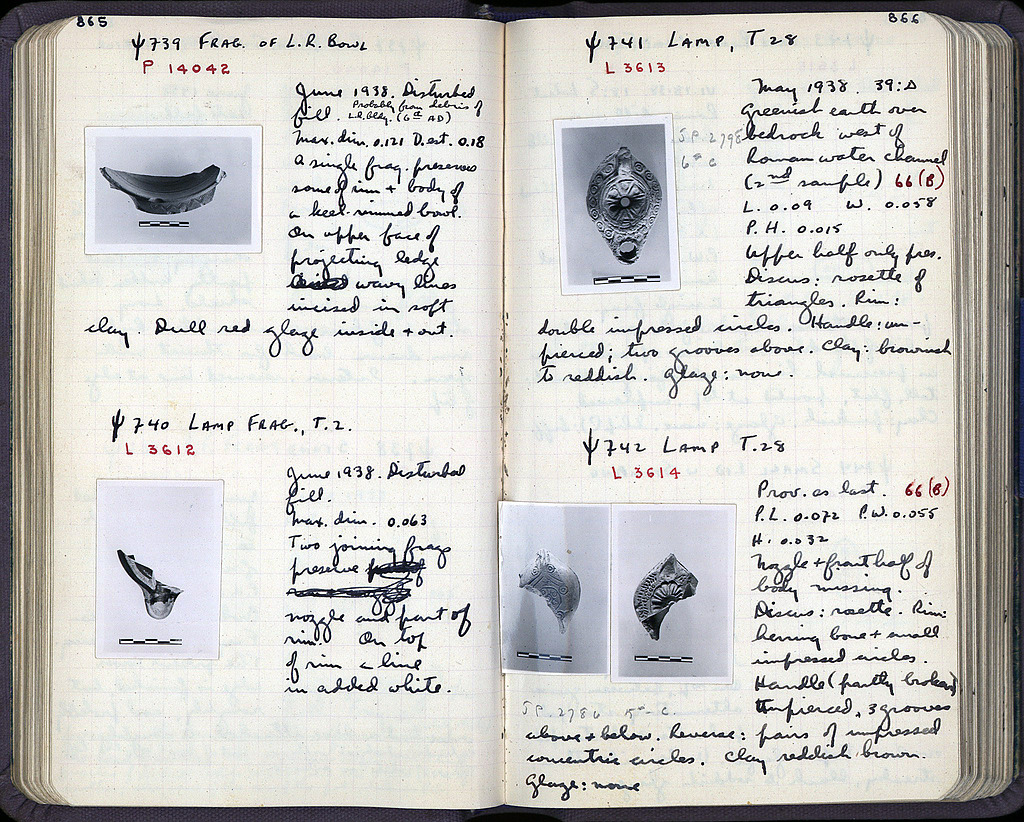 865
ψ739 FRAG. OF L.R. BOWL
P 14042
June 1938. Disturbed
fill. Probably from debris of
L.R. bldg. (6th AD)
Max. dim. 0.121 D. est. 0.18
A single frag. preserves
some of rim + body of
a keel-rimmed bowl.
On upper face of
projecting ledge
wavy lines
incised in soft
clay. Dull red glaze inside + out.
ψ740 LAMP FRAG., T.2.
L 3612
June 1938. Disturbed
fill.
Max. dim. 0.063
Two joining frags
preserve
nozzle and part of
rim. On top
of rim a line
in added white.
866
ψ741 LAMP, T28
L 3613
May 1938. 39:Δ
Greenish earth over
bedrock west of
Roman water channel
(2nd sample) 66(B)
L. 0.09 W. 0.058
P.H. 0.015
Upper half only pres.
Discus: rosette of
triangles. Rim:
double impressed circles. Handle: un-
pierced; two grooves above. Clay: brownish
to reddish. Glaze: none.
S.P. 2798
6th C
ψ742 LAMP T.28
L 3614
Prov. as last. 66(B)
P.L. 0.072 P.W. 0.055
H. 0.032
Nozzle + front half of
body missing.
Discus: rosette. Rim:
herring bone + small
impressed circles.
Handle (partly broken)
Unpierced, 3 grooves
above + below. Reverse: pairs of impressed
concentric circles. Clay reddish brown.
Glaze: none
S.P. 2786 5th C.